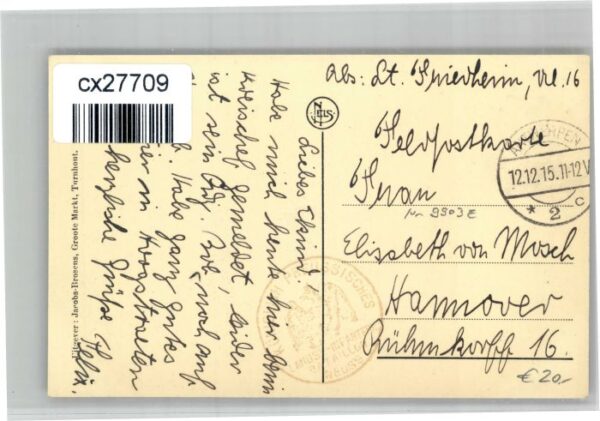 cx27709
Abs: Lt. Friedheim, Vl. 16
Feldpostkarte
Frau
Nr 9903 E
Elisabeth von Mosch
Hannover
Rühmkorff 16.
€ 20,-
12.12.15.11-12V
* 2 c
Liebes Kind!
Habe mich heute hier beim
gemeldet, leider
ist sein noch auf
Habe ganz gutes
hier in Hoogstraeten
herzliche Grüße Felix.
Uitgever: Jacobs-Brosens, Groote Markt, Turnhout.